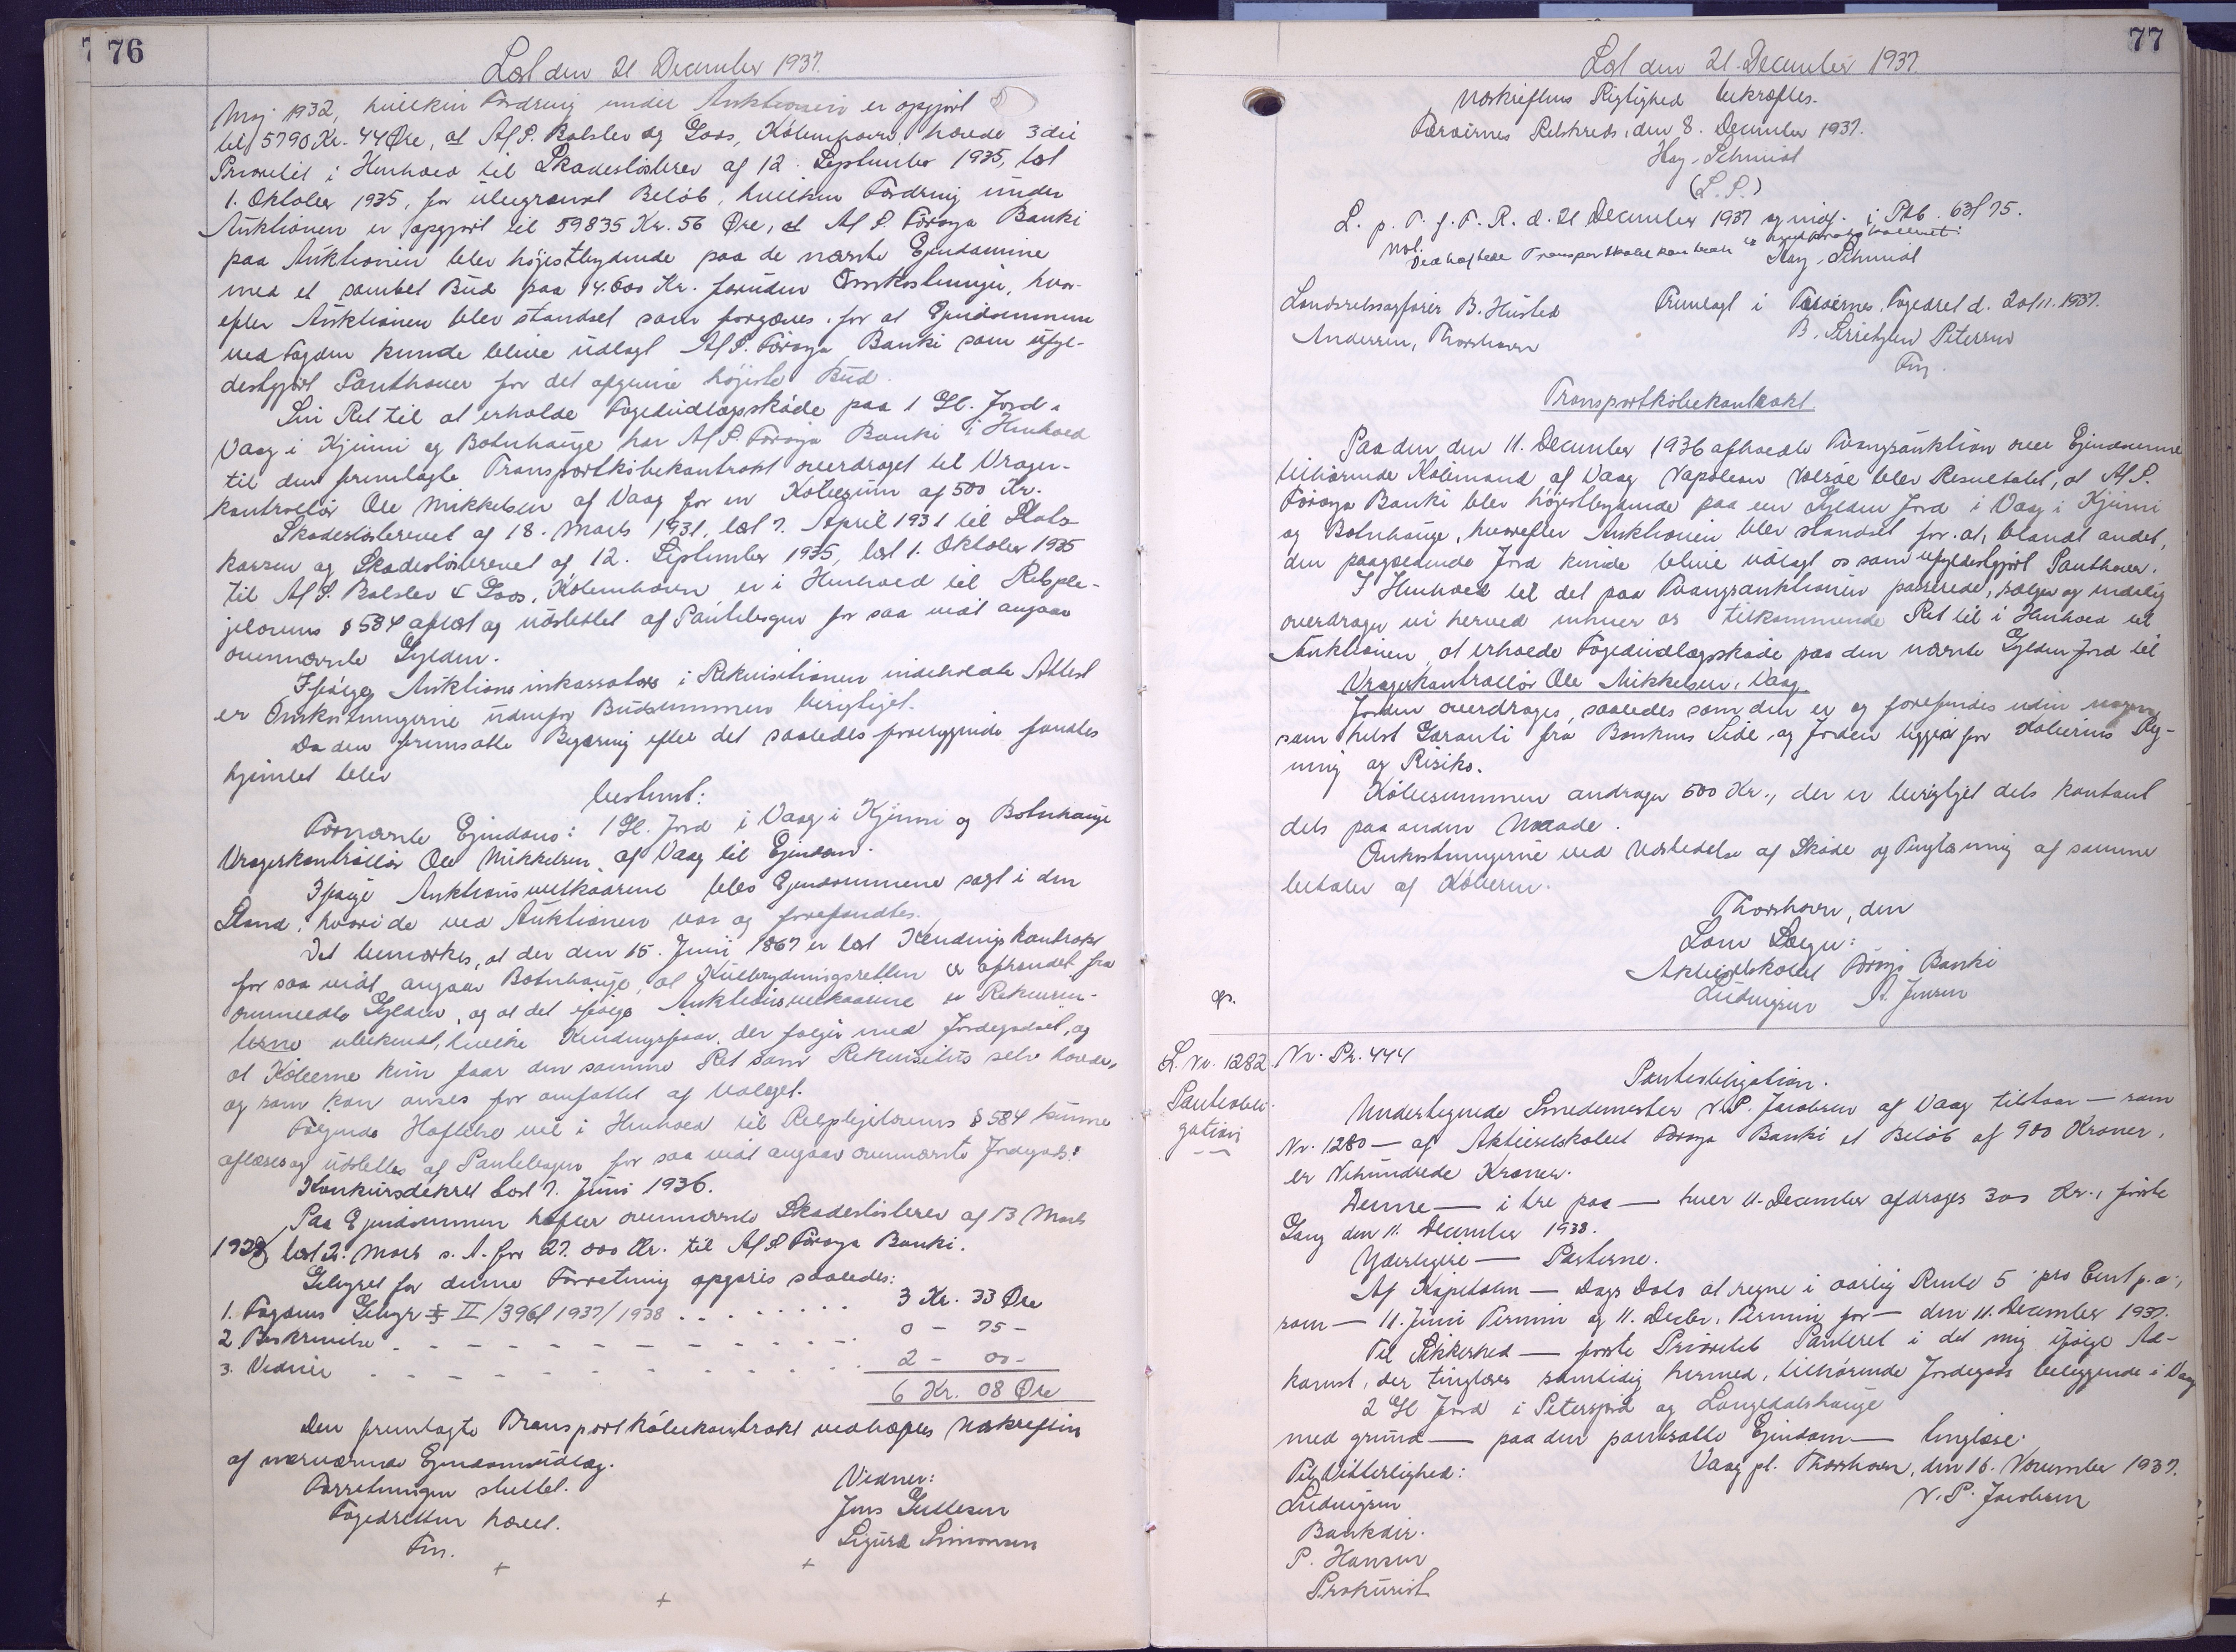 76
Læst den 21 December 1937.
Maj 1932, hvilken Fordring under Auktionen er opgjort
til 5790 Kr. 44 Øre, at A/S. Balslev og Loos, København, havde 3die
Prioritet i Henhold til Skadesløsbrev af 12. September 1935, læst
1. Oktober 1935, for ubegrænset Beløb, hvilken Fordring under
Auktionen er opgjort til 59835 Kr. 56 Øre, at A/S. Føroya Banki
paa Auktionen blev højestbydende paa de nævnte Ejendomme
med et samlet Bud paa 14.600 Kr. foruden Omkostninger, hvor-
efter Auktionen blev standset som forgæves for at Ejendommen
ved Fogden kunde blive udlagt A/S. Føroya Banki som ufyl-
destgjort Panthaver for det afgivne højeste Bud.
Sin Ret til at erholde Fogedudlægsskøde paa 1 Gl. Jord i
Vaag i Kjimi og Botnhauge har A/S. Føroya Banki i Henhold
til den fremlagte Transportkøbekontrakt overdraget til Vrager-
kontrollør Ole Mikkelsen af Vaag for en Købesum af 500 Kr.
Skadesløsbrevet af 18. Marts 1931, læst 7. April 1931 til Stats-
kassen og Skadesløsbrevet af 12. September 1935, læst 1. Oktober 1935
til A/S. Balslev & Loos, København er i Henhold til Retsple-
jelovens § 584 aflæst og udslettet af Pantebogen for saa vidt angaar
ovennævnte Gylden.
Ifølge Auktionsinkassators i Rekvisitionen indeholdte Attest
er Omkostningerne udenfor Budsummen berigtiget.
Da den fremsatte Begæring efter det saaledes foreliggende fandtes
hjemlet blev
bestemt:
Fornævnte Ejendom: 1 Gl. Jord i Vaag i Kjimi og Botnhauge
Vragerkontrollør Ole Mikkelsen af Vaag til Ejendom.
Ifølge Auktionsvilkaarene blev Ejendommene solgt i den
Stand, hvori de ved Auktionen var og forefandtes.
Det bemærkes, at der den 15. Juni 1867 er læst Kendingskontrakt
for saa vidt angaar Botnhauge, at Kulbrydningsretten er afhændet fra
ommeldte Gylden, og at det ifølge Auktionsvilkaarene er Rekviren-
terne ubekendt, hvilke Kendingsfaar, der følger med Jordegodset, og
at Køberne kun faar den samme Ret som Rekvisitus selv havde,
og som kan anses for omfattet af Udlæget.
Følgende Hæftelse vil i Henhold til Retsplejelovens § 584 kunne
aflæses og udslettes af Pantebogen for saa vidt angaar ovennævnte Jordegods:
Konkursdekret læst 7. Juni 1936.
Paa Ejendommen hæfter ovennævnte Skadesløsbrev af 13 Marts
1928, læst 2. Marts s. A. for 27.000 Kr. til A/S Føroya Banki.
Gebyret for denne Forretning opgøres saaledes:
1. Fogdens Gebyr § II/396/1937/1938 . . . . . . . 3 Kr. 33 Øre
2 Beskrivelse - - - - - - - - - - 0 - 75 -
3. Vidner - - - - - - - - - - 2 - 00 -
6 Kr. 08 Øre
Den fremlagte Transportkøbekontrakt vedhæftes Udskriften
af nærværende Ejendomsudlæg.
Forretningen sluttet.
Fogedretten hævet.
Fin.
Vidner:
Jens Gullesen
Sigurd Simonsen
77
Læst den 21. December 1937
Udskriftens Rigtighed bekræftes.
Færøernes Retskreds, den 8. December 1937.
Hay-Schmidt
(L. S.)
L. p. T. f. F. R. d. 21 December 1937 og indf. i Ptb. 63/75.
Not.
Vedhæftede Transportkøbekontrakt
Hay-Schmidt
Landsretssagfører B. Husted
Andersen, Thorshavn
Fremlagt i Færøernes Fogedret d. 20/11. 1937.
B. Petersen
Fm.
Transportkøbekontrakt.
Paa den den 11. December 1936 afholdte Tvangsauktion over Ejendommene
tilhørende Købmand af Vaag Napoleon Nolsøe blev Resultatet, at A/S.
Føroya Banki blev højestbydende paa een Gylden Jord i Vaag i Kjimi
og Botnhauge, hvorefter Auktionen blev standset for at, blandt andet,
den paagældende Jord kunde blive udlagt os som ufyldestgjort Panthaver.
I Henhold til det paa Tvangsauktionen passerede, sælger og endelig
overdrager vi herved enhver os tilkommende Ret til i Henhold til
Auktionen, at erholde Fogedudlægsskøde paa den nævnte Gylden Jord til
Vragerkontrollør Ole Mikkelsen, Vaag.
Jorden overdrages, saaledes som den er og forefindes uden nogen
som helst Garanti fra Bankens Side, og Jorden ligger for Køberens Reg-
ning og Risiko.
Købesummen andrager 500 Kr., der er berigtiget dels kontant
dels paa anden Maade.
Omkostningerne ved Udstedelse af Skøde og Tinglæsning af samme
betales af Køberen.
Thorshavn, den
Som Sælger:
Aktieselskabet Føroya Banki
Ludvigsen A. Jensen
L. Nr. 1282
Pantobli-
gation
Nr. Pr. 444
Pantobligation.
Undertegnede Smedemester N.P. Jacobsen af Vaag tilstaar — som
Nr. 1280 — af Aktieselskabet Føroya Banki et Beløb af 900 Kroner,
er Nihundrede Kroner.
Denne — i tre paa — hver 11. December afdrages 300 Kr., første
Gang den 11. December 1938.
Yderligere — Parterne.
Af Kapitalen — Dags Dato at regne i aarlig Rente 5 pro Cent p. a.,
som — 11. Juni Termin og 11. Decbr. Termin for — den 11. December 1937.
Til Sikkerhed — første Prioritets Panteret i det mig ifølge Ad-
komst, der tinglæses samtidig hermed, tilhørende Jordegods beliggende i Vaag
2 Gl Jord i Petersjord og Langedalshauge
med grund — paa den pantsatte Ejendom — tinglæse.
Vaag pt. Thorshavn, den 16. November 1937.
N. P. Jacobsen
Til Vitterlighed:
Ludvigsen
Bankdir.
P. Hansen
Prokurist